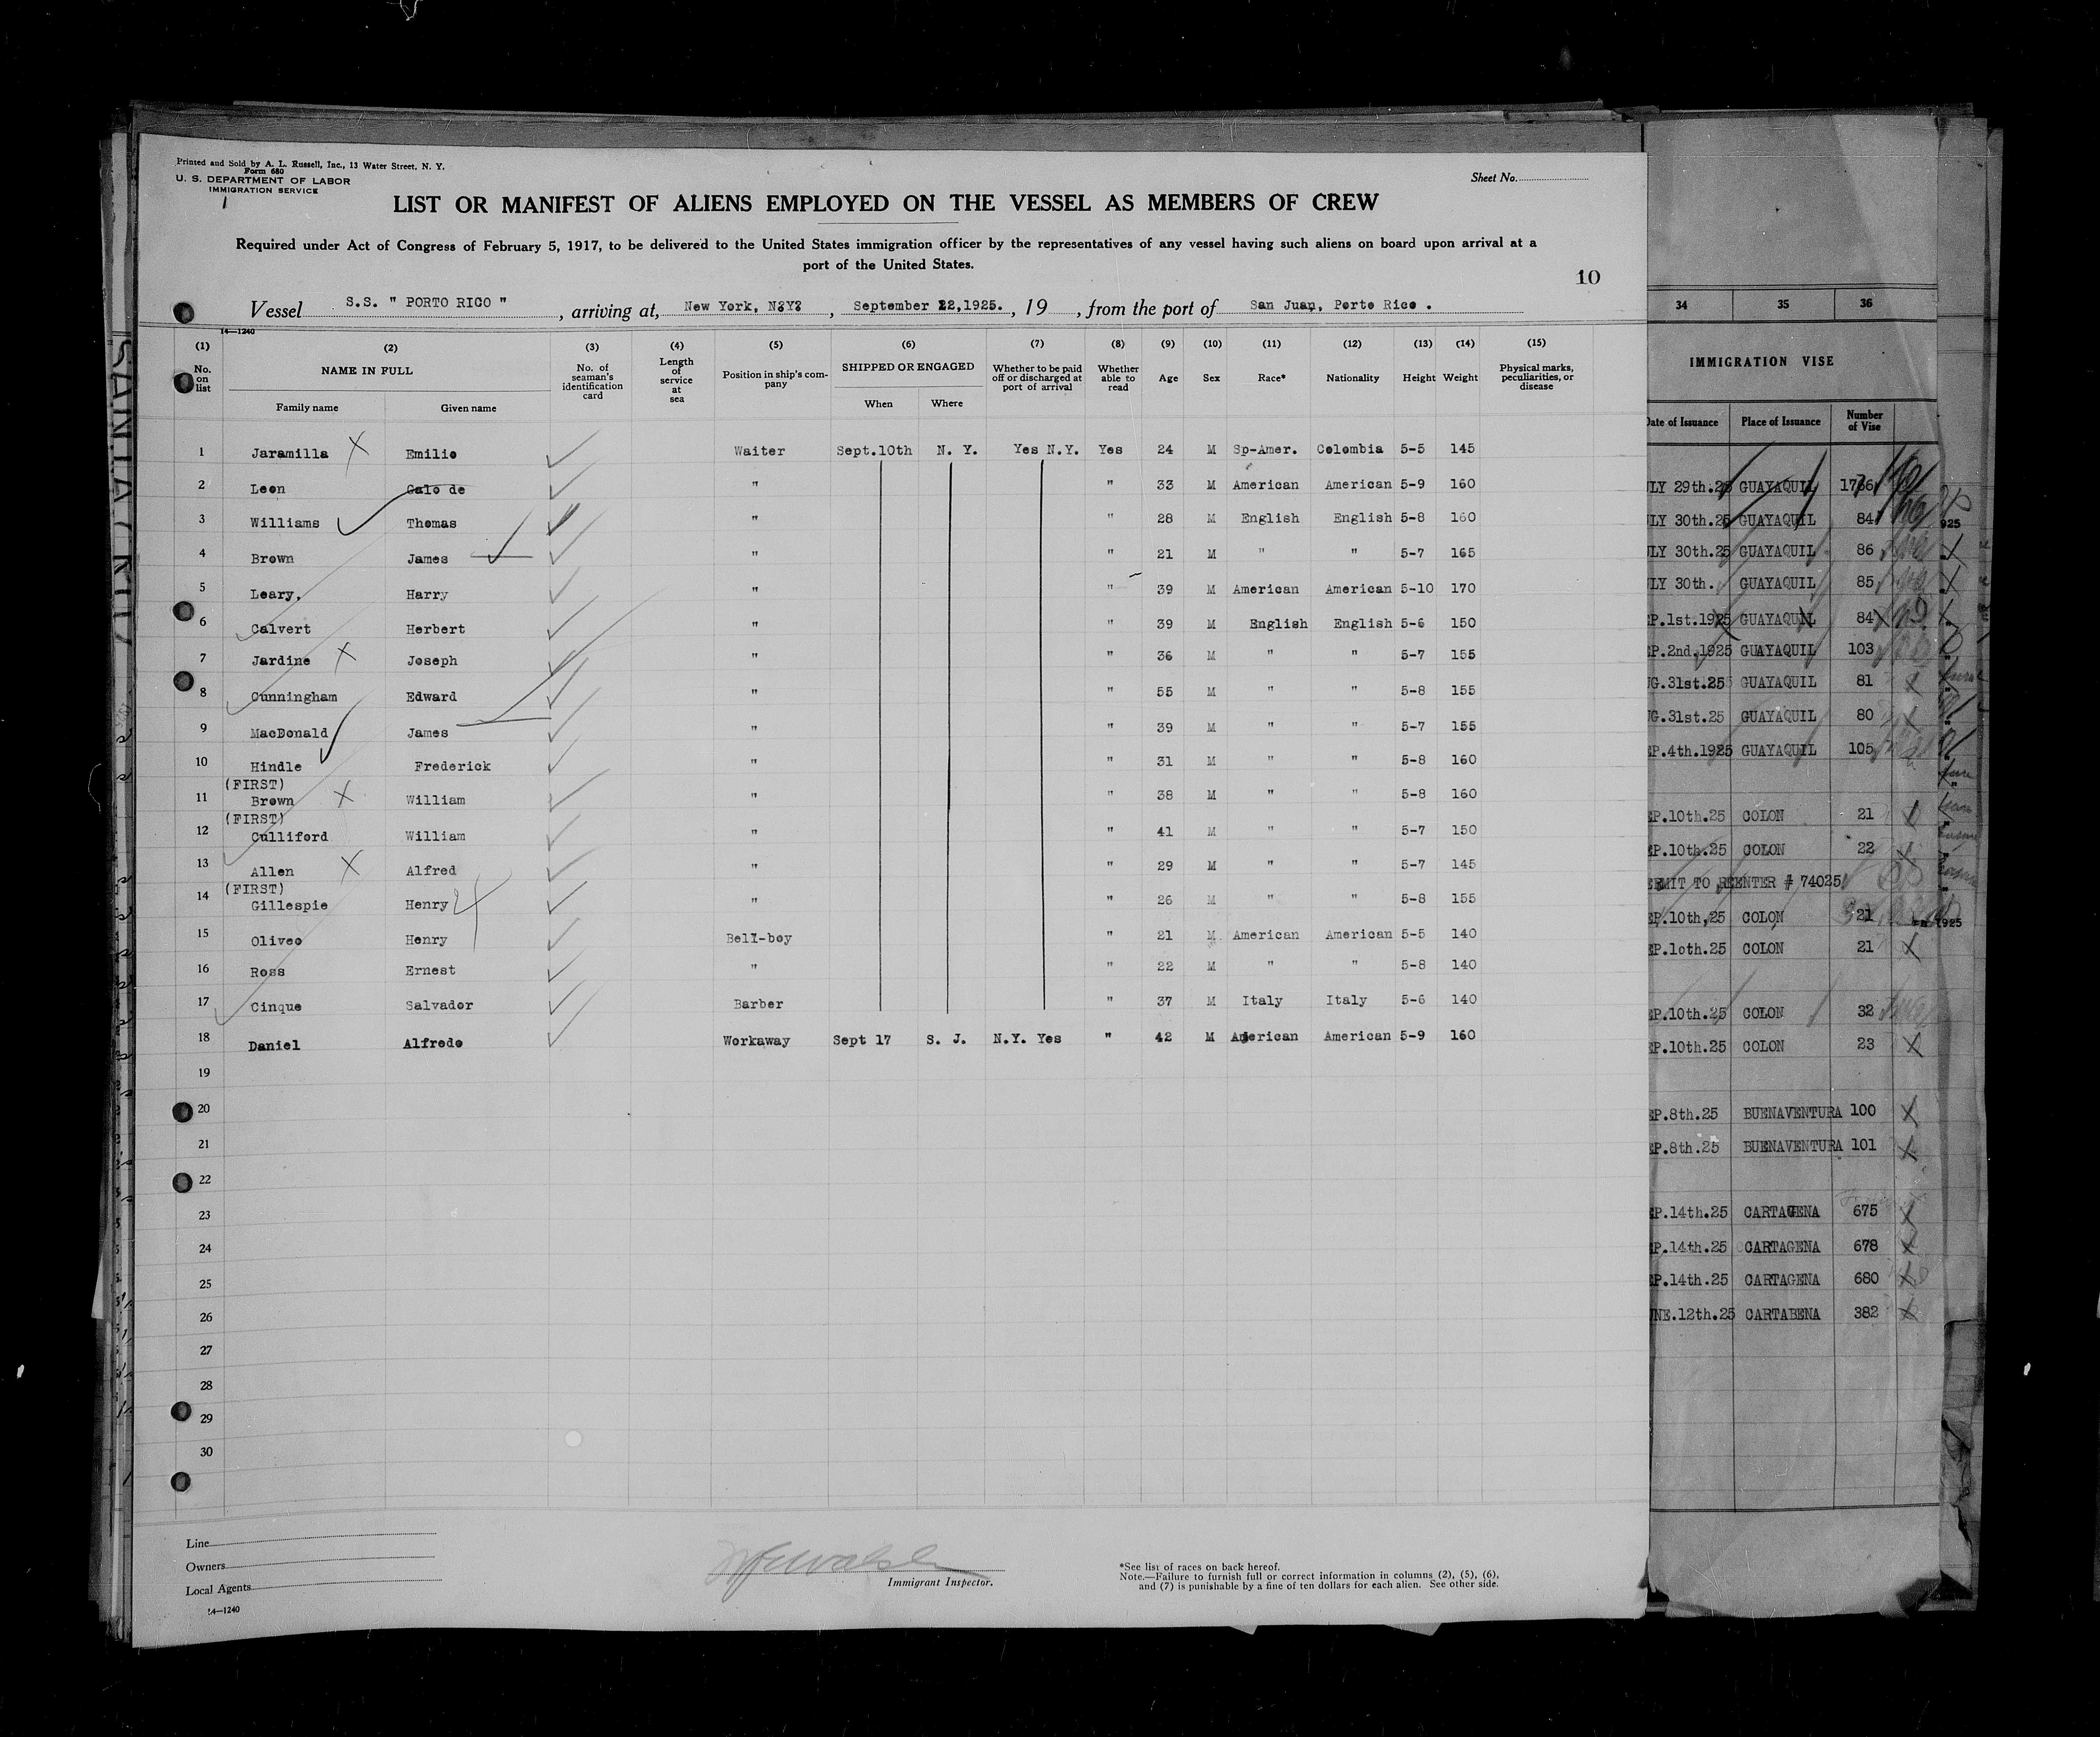 Printed and Sold by A. L. Russell, Inc., 13 Water Street, N. Y.
Form 680
U. S. DEPARTMENT OF LABOR
IMMIGRATION SERVICE
Sheet No.
LIST OR MANIFEST OF ALIENS EMPLOYED ON THE VESSEL AS MEMBERS OF CREW
Required under Act of Congress of February 5, 1917, to be delivered to the United States immigration officer by the representatives of any vessel having such aliens on board upon arrival at a
port of the United States.
10
Vessel S.S. " PORTO RICO " , arriving at, New York, N.Y. , September 22,1925. , 19 , from the port of San Juan, Porto Rico .
14—1240
(1) (2) (3) (4) (5) (6) (7) (8) (9) (10) (11) (12) (13) (14) (15)
No. on list NAME IN FULL No. of seaman's identification card Length of service at sea Position in ship's company SHIPPED OR ENGAGED Whether to be paid off or discharged at port of arrival Whether able to read Age Sex Race* Nationality Height Weight Physical marks, peculiarities, or disease
Family name Given name When Where
1 Jaramilla Emilio Waiter Sept.10th N. Y. Yes N.Y. Yes 24 M Sp-Amer. Colombia 5-5 145
2 Leon Galo de " " 33 M American American 5-9 160
3 Williams Thomas " " 28 M English English 5-8 160
4 Brown James " " 21 M " " 5-7 165
5 Leary, Harry " " 39 M American American 5-10 170
6 Calvert Herbert " " 39 M English English 5-6 150
7 Jardine Joseph " " 36 M " " 5-7 155
8 Cunningham Edward " " 55 M " " 5-8 155
9 MacDonald James " " 39 M " " 5-7 155
10 Hindle Frederick " " 31 M " " 5-8 160
(FIRST)
11 Brown William " " 38 M " " 5-8 160
(FIRST)
12 Culliford William " " 41 M " " 5-7 150
13 Allen Alfred " " 29 M " " 5-7 145
(FIRST)
14 Gillespie Henry " " 26 M " " 5-8 155
15 Oliveo Henry Bell-boy " 21 M American American 5-5 140
16 Ross Ernest " " 22 M " " 5-8 140
17 Cinque Salvador Barber " 37 M Italy Italy 5-6 140
18 Daniel Alfredo Workaway Sept 17 S. J. N.Y. Yes " 42 M American American 5-9 160
19
20
21
22
23
24
25
26
27
28
29
30
Line
Owners
Local Agents
14—1240
Immigrant Inspector.
*See list of races on back hereof.
Note.—Failure to furnish full or correct information in columns (2), (5), (6),
and (7) is punishable by a fine of ten dollars for each alien. See other side.
34 35 36
IMMIGRATION VISE
Date of Issuance Place of Issuance Number of Vise
LY 29th.25 GUAYAQUIL 1766
LY 30th.25 GUAYAQUIL 84
LY 30th.25 GUAYAQUIL 86
LY 30th. GUAYAQUIL 85
P.1st.1925 GUAYAQUIL 84
P.2nd,1925 GUAYAQUIL 103
G.31st.25 GUAYAQUIL 81
G.31st.25 GUAYAQUIL 80
P.4th.1925 GUAYAQUIL 105
P.10th.25 COLON 21
P.10th.25 COLON 22
RMIT TO REENTER # 74025
P.10th,25 COLON 21
P.10th.25 COLON 21
P.10th.25 COLON 32
P.10th.25 COLON 23
P.8th.25 BUENAVENTURA 100
P.8th.25 BUENAVENTURA 101
P.14th.25 CARTAGENA 675
P.14th.25 CARTAGENA 678
P.14th.25 CARTAGENA 680
NE.12th.25 CARTABENA 382